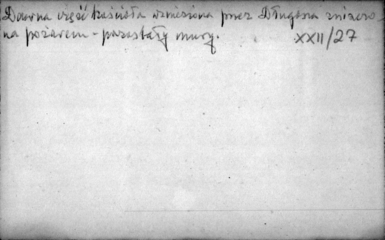 Dawna część kościoła wzniesiona przez Długosza zniszczo
na pożarem - pozostały mury.
XXII/27